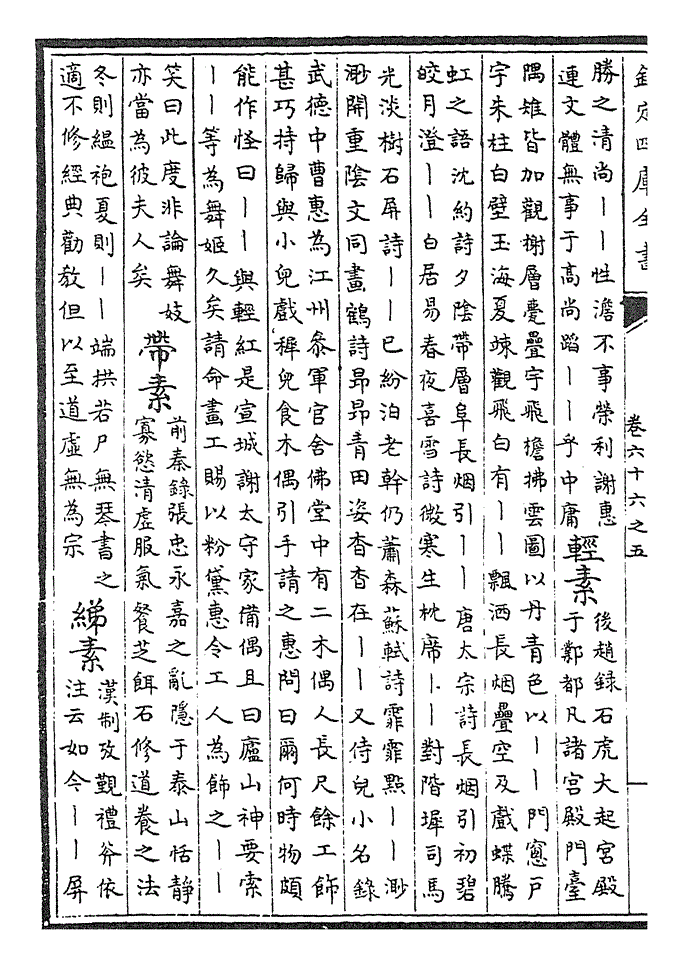 欽定四庫全書
卷六十六之五
勝之清尚｜｜性澹不事榮利謝惠
連文體無事于高尚蹈｜｜乎中庸
輕素
後趙錄石虎大起宮殿
于鄴都凡諸宮殿門臺
隅雉皆加觀榭層甍疊宇飛檐拂雲圖以丹青色以｜｜門窻戶
宇朱柱白壁玉海夏竦觀飛白有｜｜飄洒長烟疊空及戲蝶騰
虹之語沈約詩夕陰帶層阜長烟引｜｜唐太宗詩長烟引初碧
皎月澄｜｜白居易春夜喜雪詩微寒生枕席｜｜對階墀司馬
光淡樹石屏詩｜｜已紛泊老幹仍蕭森蘇軾詩霏霏點｜｜渺
渺開重陰文同畫鶴詩昻昻青田姿杳杳在｜｜又侍兒小名錄
武德中曹惠為江州叅軍官舍佛堂中有二木偶人長尺餘工飾
甚巧持歸與小兒戲穉兒食木偶引手請之惠問曰爾何時物頗
能作怪曰｜｜與輕紅是宣城謝太守家俑偶且曰廬山神要索
｜｜等為舞姬久矣請命畫工賜以粉黛惠令工人為飾之｜｜
笑曰此度非論舞妓
亦當為彼夫人矣
帶素
前秦錄張忠永嘉之亂隱于泰山恬靜
寡慾清虛服氣餐芝餌石修道養之法
冬則緼袍夏則｜｜端拱若尸無琴書之
適不修經典勸敎但以至道虛無為宗
綈素
漢制攷覲禮斧依
注云如今｜｜屏